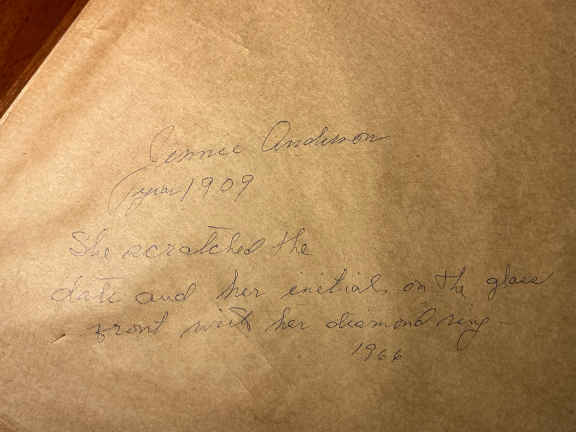 Jennie Anderson
year 1909
She scratched the
date and her initials on the glass
front with her diamond ring
1966